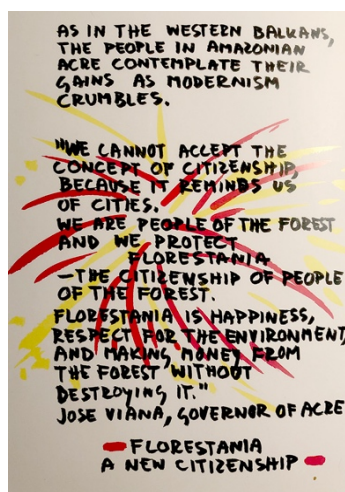 AS IN THE WESTERN BALKANS,
THE PEOPLE IN AMAZONIAN
ACRE CONTEMPLATE THEIR
GAINS AS MODERNISM
CRUMBLES.
"WE CANNOT ACCEPT THE
CONCEPT OF CITIZENSHIP,
BECAUSE IT REMINDS US
OF CITIES.
WE ARE PEOPLE OF THE FOREST
AND WE PROTECT
FLORESTANIA
—THE CITIZENSHIP OF PEOPLE
OF THE FOREST.
FLORESTANIA IS HAPPINESS,
RESPECT FOR THE ENVIRONMENT,
AND MAKING MONEY FROM
THE FOREST WITHOUT
DESTROYING IT."
JOSE VIANA, GOVERNOR OF ACRE
FLORESTANIA
A NEW CITIZENSHIP